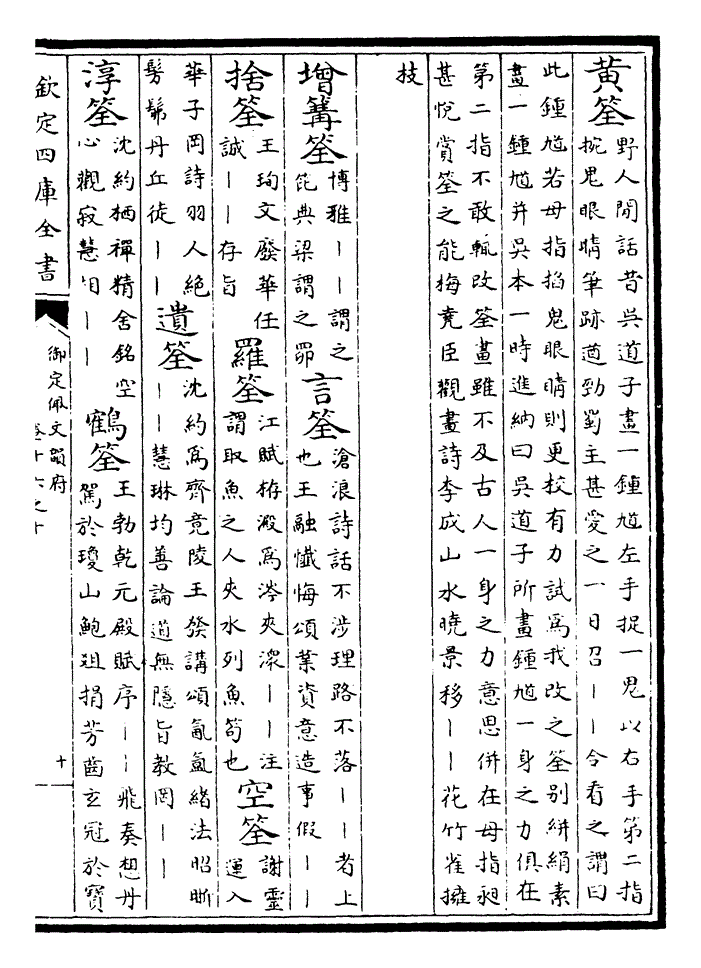 黄筌野人閒話昔吳道子畫一鍾馗左手捉一鬼以右手第二指
捥鬼眼睛筆跡遒勁蜀主甚愛之一日召丨丨令看之謂曰
此鍾馗若母指掐鬼眼睛則更校有力試為我改之筌別絣絹素
畫一鍾馗并吳本一時進納曰吳道子所畫鍾馗一身之力俱在
第二指不敢輒改筌畫雖不及古人一身之力意思併在母指昶
甚悅賞筌之能梅堯臣觀畫詩李成山水曉景移丨丨花竹雀擁
技
增篝筌博雅丨丨謂之
典梁謂之罶
言筌滄浪詩話不涉理路不落丨丨者上
也王融懺悔頌業資意造事假丨丨
捨筌王珣文廢華任
誠丨丨存旨
羅筌江賦栫澱為涔夾潀丨丨注
謂取魚之人夾水列魚笱也
空筌謝靈
運入
華子岡詩羽人絕
髣髴丹丘徒丨丨
遺筌沈約為齊竟陵王發講頌氤氳緒法昭晣
丨丨慧琳均善論道無隱旨教罔丨丨
淳筌沈約栖禪精舍銘空
心觀寂慧相丨丨
鶴筌王勃乾元殿賦序丨丨飛奏想丹
駕於瓊山鮑俎捐芳啚玄冠於寶
欽定四庫全書
御定佩文韻府
卷十六之十
十